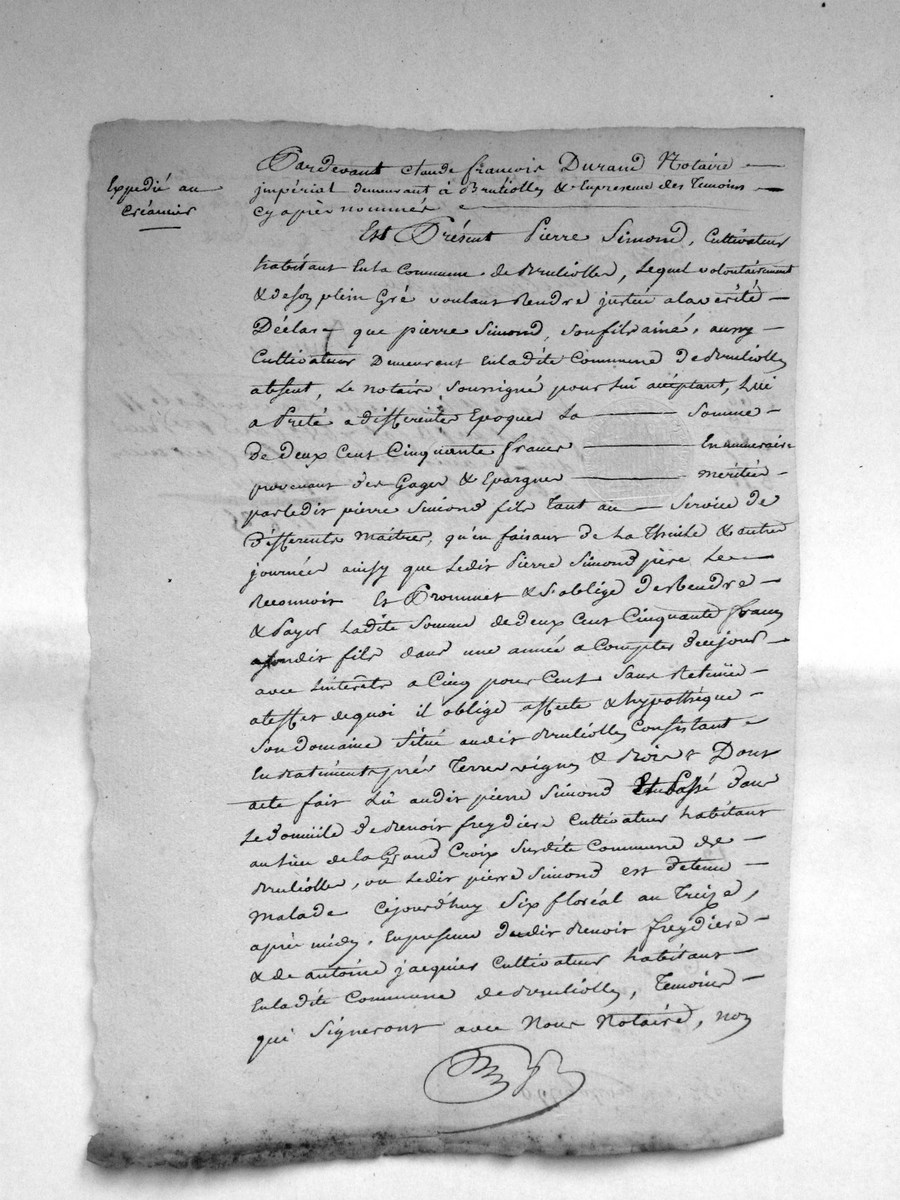 Expedié au
créancier
Pardevant Claude françois Durand Notaire
impérial demeurant à Brulliolles & Enpresence des Temoins
cy après nommés
Est Présent Pierre Simond, Cultivateur
habitant Enla Commune de Brulliolles, Lequel volontairement
& deson plein Gré voulant Rendre justice alaverité
Déclare que pierre Simond, sonfils ainé, aussy
Cultivateur Demeurent Enladite Commune De Brulliolles
absent, Le Notaire soussigné pour lui acceptant, Lui
a Preté a differentes Epoques La Somme
De deux Cent Cinquante francs En numeraire
provenant des Gages & Epargnes meritées
parledit pierre Simond fils Tant au Service de
differents Maitres, qu'en faisant de la Thoile & autres
journées ainsy que Ledit Pierre Simond père Le
Reconnoit Et Prommet & s'oblige De Rendre
& Payer Ladite Somme de deux Cent Cinquante francs
asondit fils dans une année a Compter decejour
avec Lintérêts a Cinq pour Cent Sans Retenüe
aleffet dequoi il oblige affecte & hypothèque
Son Domaine Situé audit Brulliolles Consistant
En Batiments près Terres vignes & Bois & Dont
acte fait Lû audit pierre Simond Et Passé dans
Le domicile De Benoit freydiere Cultivateur habitant
au Lieu de la Grand Croix Susdite Commune de
Brulliolles, ou Ledit pierre Simond est detenu
Malade Cejourd'huy Six floréal an Treize,
après midy. Enpresence Dudit Benoit freydiere
& de antoine jacquier Cultivateur habitant
Enladite Commune de Brulliolles, Temoins
qui Signeront avec Nous Notaire, non